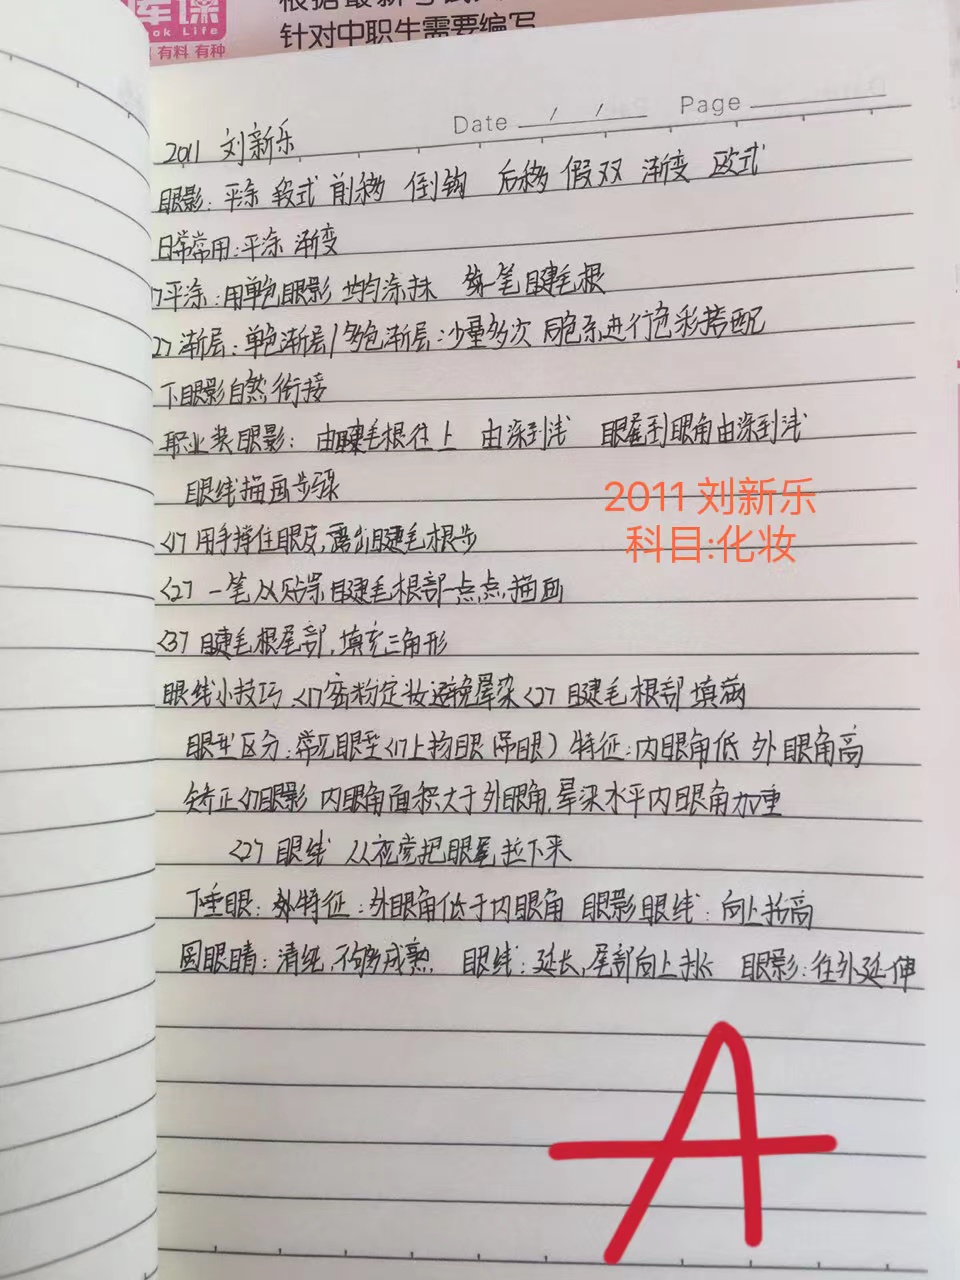 库课
ok Life
有料 有种
针对中职生需要编写
Date / / Page
2011 刘新乐
眼影：平涂 段式 前移 倒钩 后移 假双 渐变 欧式
日常常用：平涂 渐变
17平涂：用单色眼影 均匀涂抹 第一笔睫毛根
27渐层：单色渐层/多色渐层：少量多次 同色系进行色彩搭配
下眼影自然衔接
职业类眼影：由睫毛根往上 由深到浅 眼尾到眼角由深到浅
眼线描画步骤
2011 刘新乐
科目:化妆
<17用手撑住眼皮，露出睫毛根步
<27 一笔 以贴紧睫毛根部一点点，描画
<37 睫毛根尾部，填充三角形
眼线小技巧 <17密粉定妆避免晕染<27 睫毛根部填满
眼型区分：常见眼型<17上扬眼（吊眼）特征：内眼角低 外眼角高
矫正<17眼影 内眼角面积大于外眼角，晕染水平内眼角加重
<27 眼线 从视觉把眼尾拉下来
下垂眼：特征：外眼角低于内眼角 眼影眼线：向上抬高
圆眼睛：清纯，不够成熟， 眼线：延长，尾部向上扬 眼影：往外延伸
A